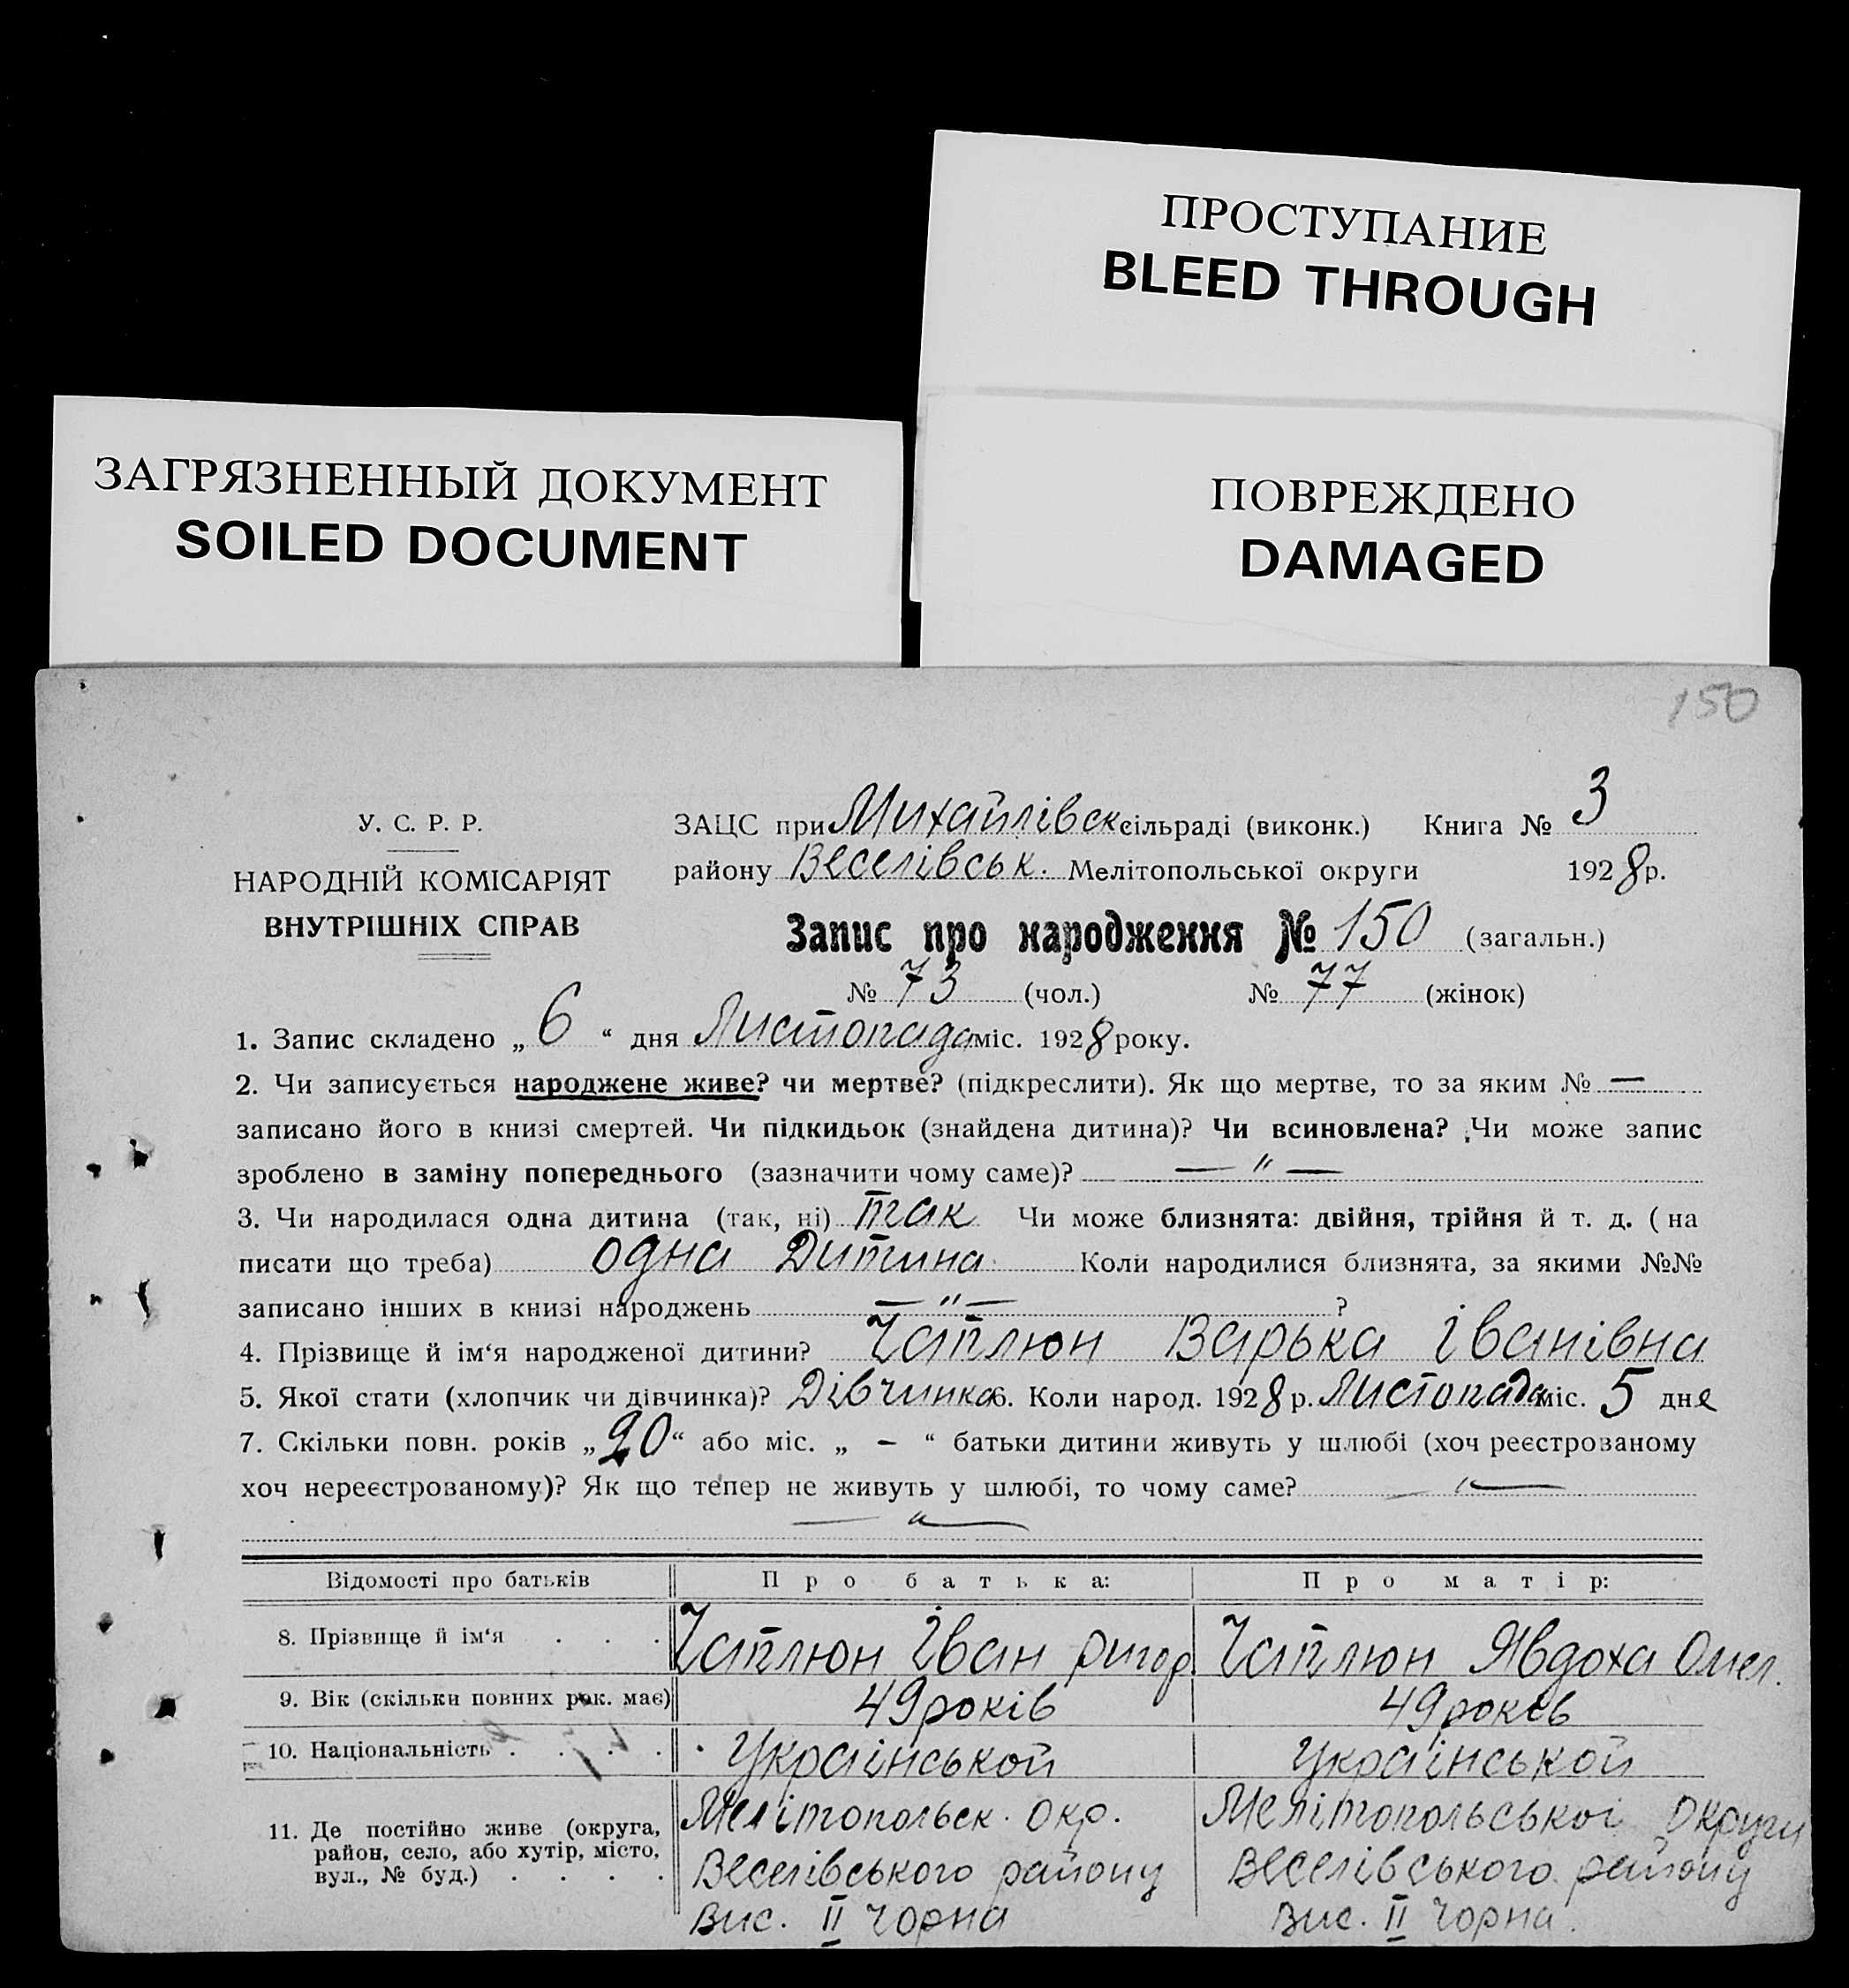 ПРОСТУПАНИЕ
BLEED THROUGH
ЗАГРЯЗНЕННЫЙ ДОКУМЕНТ
SOILED DOCUMENT
ПОВРЕЖДЕНО
DAMAGED
150
У. С. Р. Р.
НАРОДНІЙ КОМІСАРІЯТ
ВНУТРІШНІХ СПРАВ
ЗАЦС при Михайлівск сільраді (виконк.) Книга № 3
району Веселівськ. Мелітопольської округи 1928 р.
Запис про народження № 150 (загальн.)
№ 73 (чол.) № 77 (жінок)
1. Запис складено „ 6 “ дня Листопада міс. 1928 року.
2. Чи записується народжене живе? чи мертве? (підкреслити). Як що мертве, то за яким № —
записано його в книзі смертей. Чи підкидьок (знайдена дитина)? Чи всиновлена? Чи може запис
зроблено в заміну попереднього (зазначити чому саме)? — „ —
3. Чи народилася одна дитина (так, ні) так Чи може близнята: двійня, трійня й т. д. ( на
писати що треба) одна Дитина Коли народилися близнята, за якими №№
записано інших в книзі народжень — „ — ?
4. Прізвище й ім‘я народженої дитини? Чаплюн Варька Іванівна
5. Якої стати (хлопчик чи дівчинка)? Дівчинка 6. Коли народ. 1928 р. Листопада міс. 5 дня
7. Скільки повн. років „ 20 “ або міс. „ – “ батьки дитини живуть у шлюбі (хоч реєстрованому
хоч нереєстрованому)? Як що тепер не живуть у шлюбі, то чому саме? — „ —
— „ —
Відомості про батьків Про батька: Про матір:
8. Прізвище й ім‘я . . . Чаплюн Іван ригор. Чаплюн Явдоха Омел.
9. Вік (скільки повних рок. має) 49 років 49 років
10. Національність . . . . Українськой Українськой
11. Де постійно живе (округа, район, село, або хутір, місто, вул., № буд.) . . . .
Мелітопольск. Окр. Мелітопольської Округи
Веселівського району Веселівського району
Вис. II Чорна Вис. II Чорна.